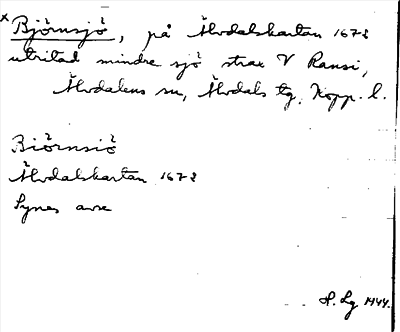 x Björnsjö, på Älvdalskartan 1672
utritad mindre sjö strax V Ransi,
Älvdalens sn, Älvdals tg, Kopp. l.
Biörnsiö
Älvdalskartan 1672
Synes avse
H. Lg 1944.